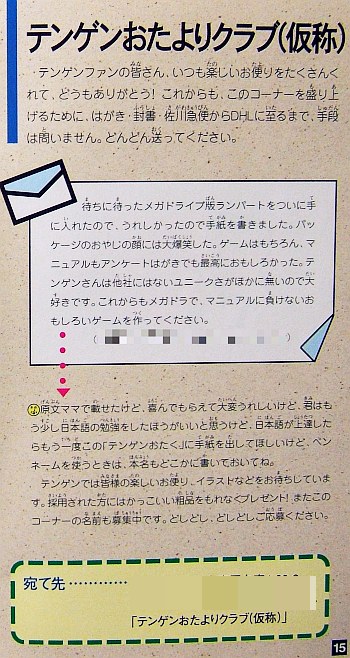 テンゲンおたよりクラブ(仮称)
テンゲンファンの皆さん、いつも楽しいお便りをたくさんく
れて、どうもありがとう! これからも、このコーナーを盛り上
げるために、はがき・封書・佐川急便からDHLに至るまで、手段
は問いません。どんどん送ってください。
待ちに待ったメガドライブ版ランパートをついに手
に入れたので、うれしかったので手紙を書きました。パッ
ケージのおやじの顔には大爆笑した。ゲームはもちろん、マ
ニュアルもアンケートはがきでも最高におもしろかった。テ
ンゲンさんは他社にはないユニークさがほかに無いので大
好きです。これからもメガドラで、マニュアルに負けないお
もしろいゲームを作ってください。
原文ママで載せたけど、喜んでもらえて大変うれしいけど、君はも
う少し日本語の勉強をしたほうがいいと思うけど、日本語が上達した
らもう一度この「テンゲンおたく」に手紙を出してほしいけど、ペン
ネームを使うときは、本名もどこかに書いておいてね。
テンゲンでは皆様の楽しいお便り、イラストなどをお待ちしていま
す。採用された方にはかっこいい粗品をもれなくプレゼント! またこの
コーナーの名前も募集中です。どしどし、どしどしご応募ください。
宛て先…………
「テンゲンおたよりクラブ(仮称)」
15